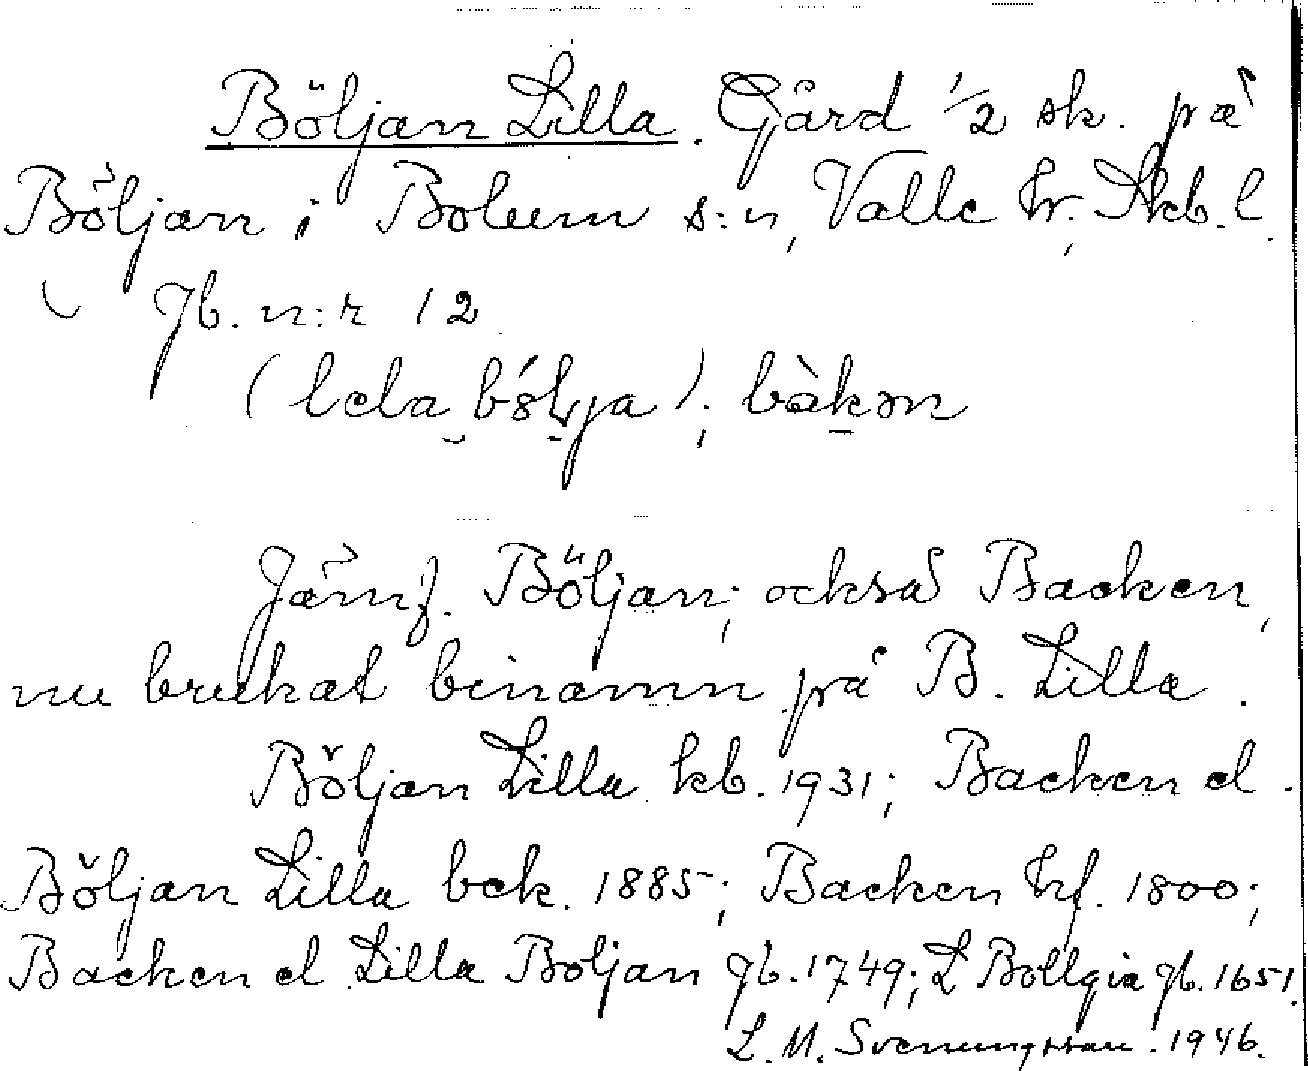 Böljan Lilla. Gård 1/2 sk. på
Böljan i Bolum s:n, Valle hr, Skb. l.
Jb. n:r 12
(lela bölja); bàkən
Jämf. Böljan; också Backen,
nu brukat binamn på B. Lilla.
Böljan Lilla kb. 1931; Backen el.
Böljan Lilla bek. 1885; Backen hf. 1800;
Backen el Lilla Böljan Jb. 1749; L Bollgia Jb. 1651.
L. M. Svenungsson. 1946.